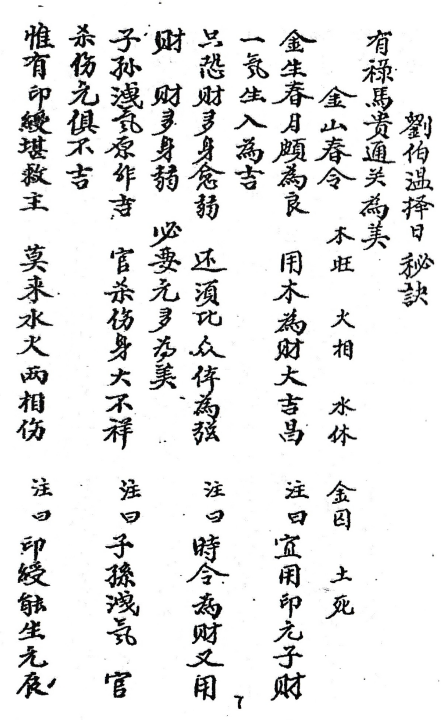 劉伯溫择日秘訣
有祿馬贵通关為美
金山春令 木旺 火相 水休 金囚 土死
金生春月頗為良 用木為财大吉昌 注曰宜用印元子财
一氣生入為吉
只恐财多身愈弱 还須比众倖為弦 注曰時令為财又用
财 财多身弱 必要元多為美
子孙洩氣原作吉 官杀伤身大不祥 注曰子孫洩氣 官
杀伤元俱不吉
惟有印綬堪救主 莫来水火两相伤 注曰印綬能生元辰
7